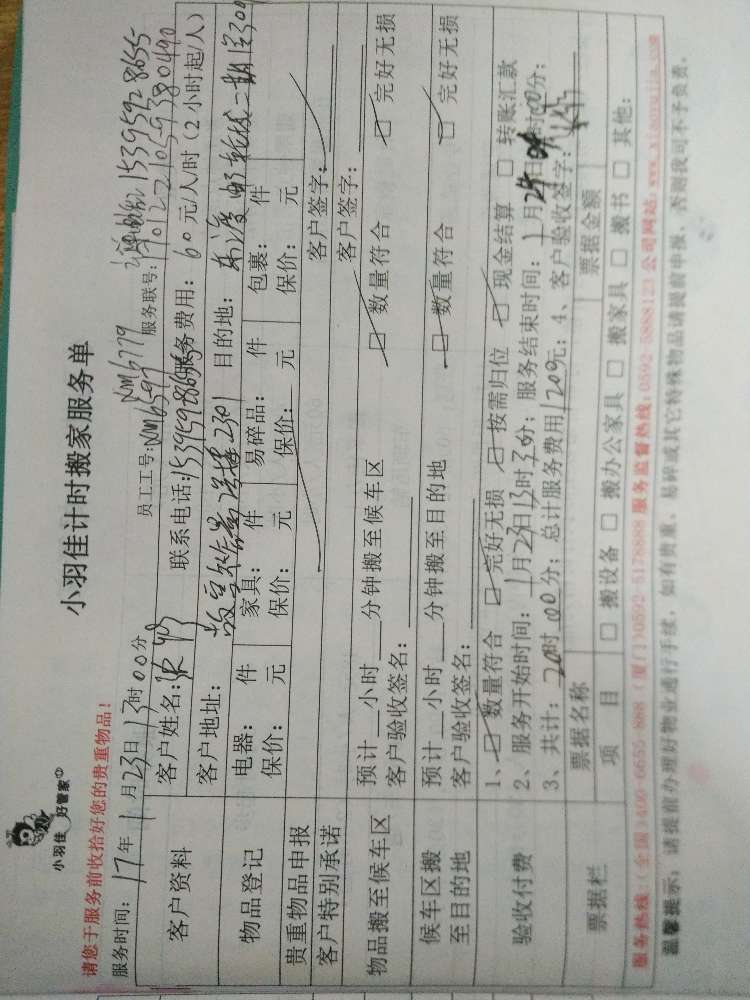 小羽佳 好管家
小羽佳计时搬家服务单
请您于服务前收拾好您的贵重物品!
服务时间: 17年 1月23日 13时00分
员工工号: NM6597 NM6779
服务联号:
15395928655
客户资料
客户姓名:
联系电话: 15395928655
服务费用: 60元/人/时 (2小时起/人)
客户地址: 2301
目的地:
物品登记
电器: 件 家具: 件 易碎品: 件 包裹: 件
保价: 元 保价: 元 保价: 元 保价: 元
贵重物品申报
客户签字:
客户特别承诺
客户签字:
物品搬至候车区
预计__小时__分钟搬至候车区 □ 数量符合 □ 完好无损
客户验收签名:
候车区搬至目的地
预计__小时__分钟搬至目的地 □ 数量符合 □ 完好无损
客户验收签名:
验收付费
1、□ 数量符合 □ 完好无损 □ 按需归位 □ 现金结算 □ 转账汇款
2、服务开始时间: 1月23日13时30分; 服务结束时间: 1月 日 时00分;
3、共计: 20时00分; 总计服务费用1200元; 4、客户验收签字:
票据栏
票据名称 票据金额
项 目 □ 搬设备 □ 搬办公家具 □ 搬家具 □ 搬书 □ 其他:
服务热线: (全国)400-6655-888 (厦门)0592-5178888 服务监督热线: 0592-5888123 公司网站: www.xiaoyujia.com
温馨提示: 请提前办理好物业通行手续, 如有贵重、易碎或其它特殊物品请提前申报, 否则我司不予负责。